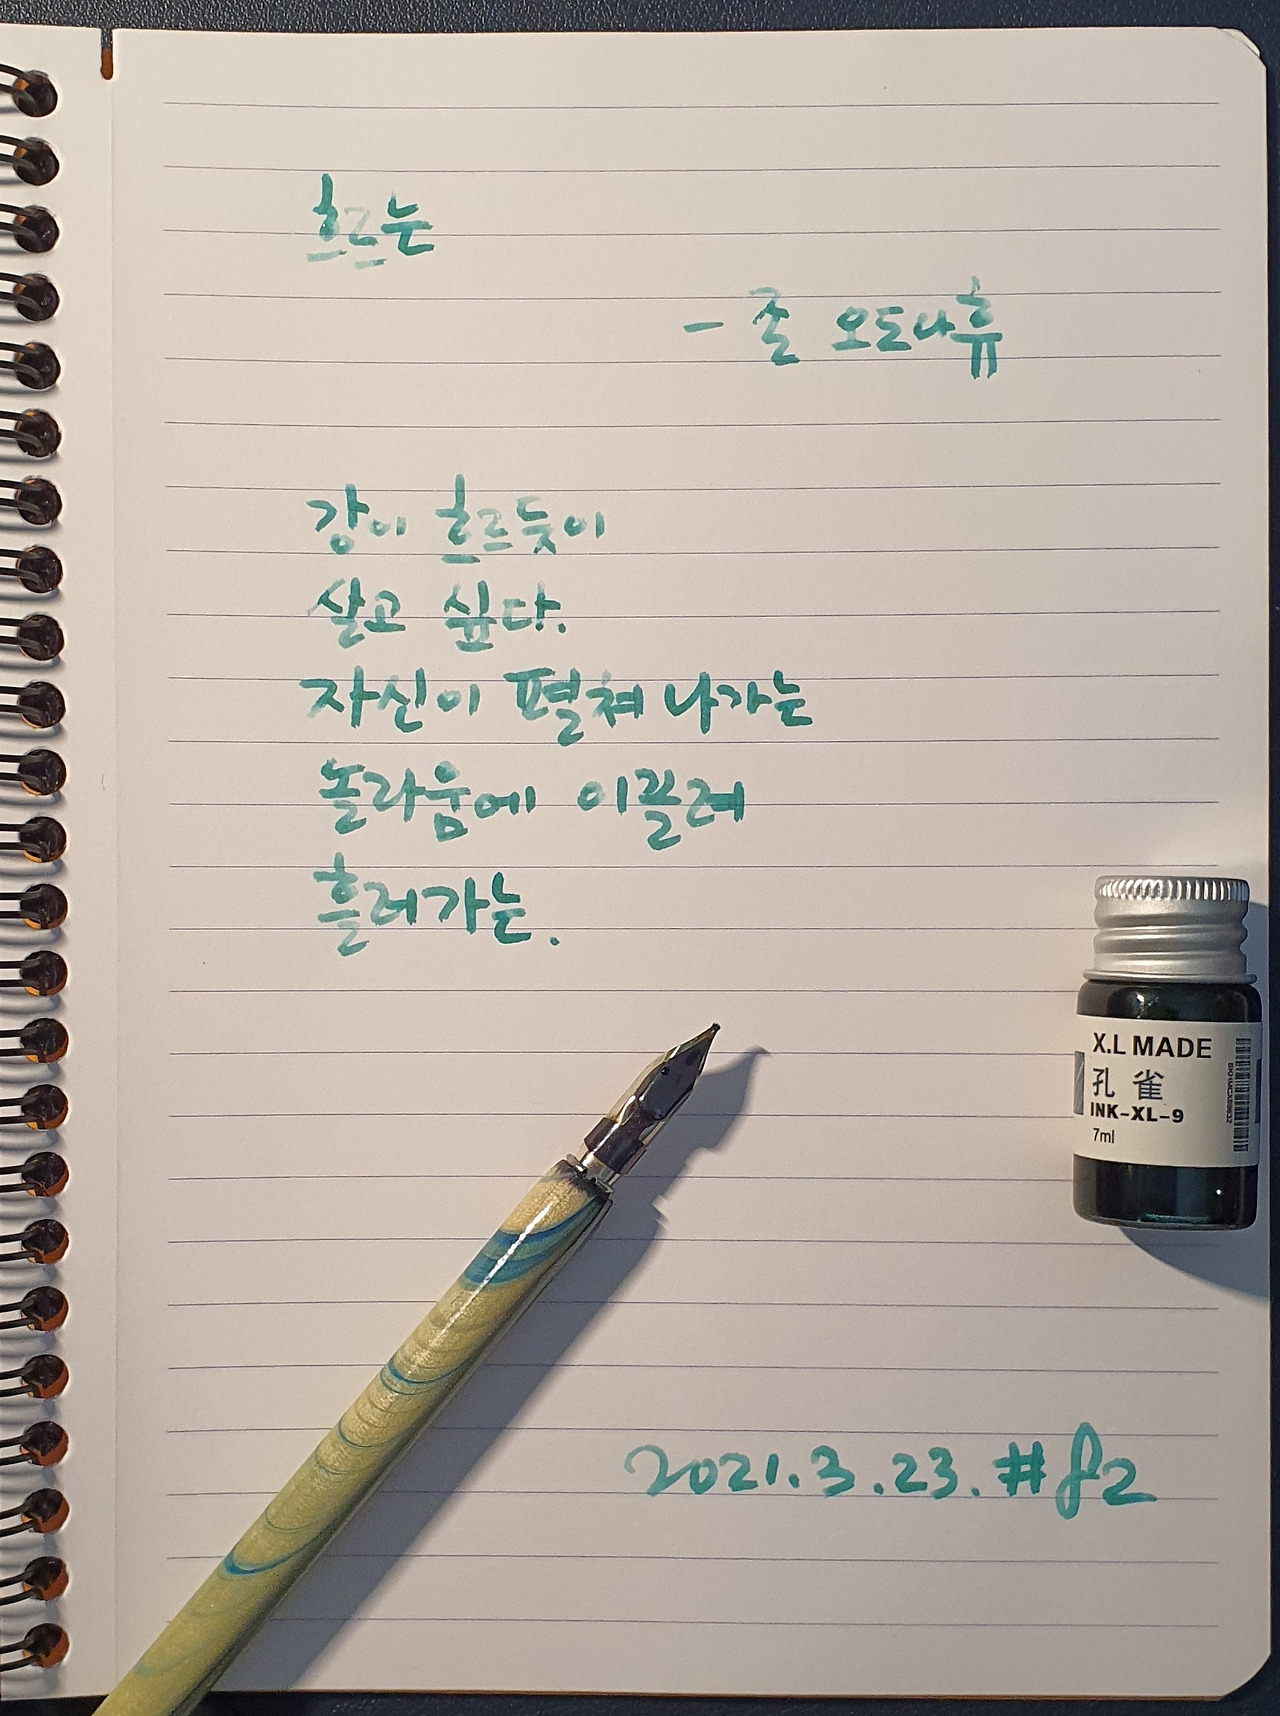 흐르는
- 존 오도나휴
강이 흐르듯이
살고 싶다.
자신이 펼쳐 나가는
놀라움에 이끌려
흘러가는.
X.L MADE
孔雀
INK-XL-9
7ml
2021.3.23. #82